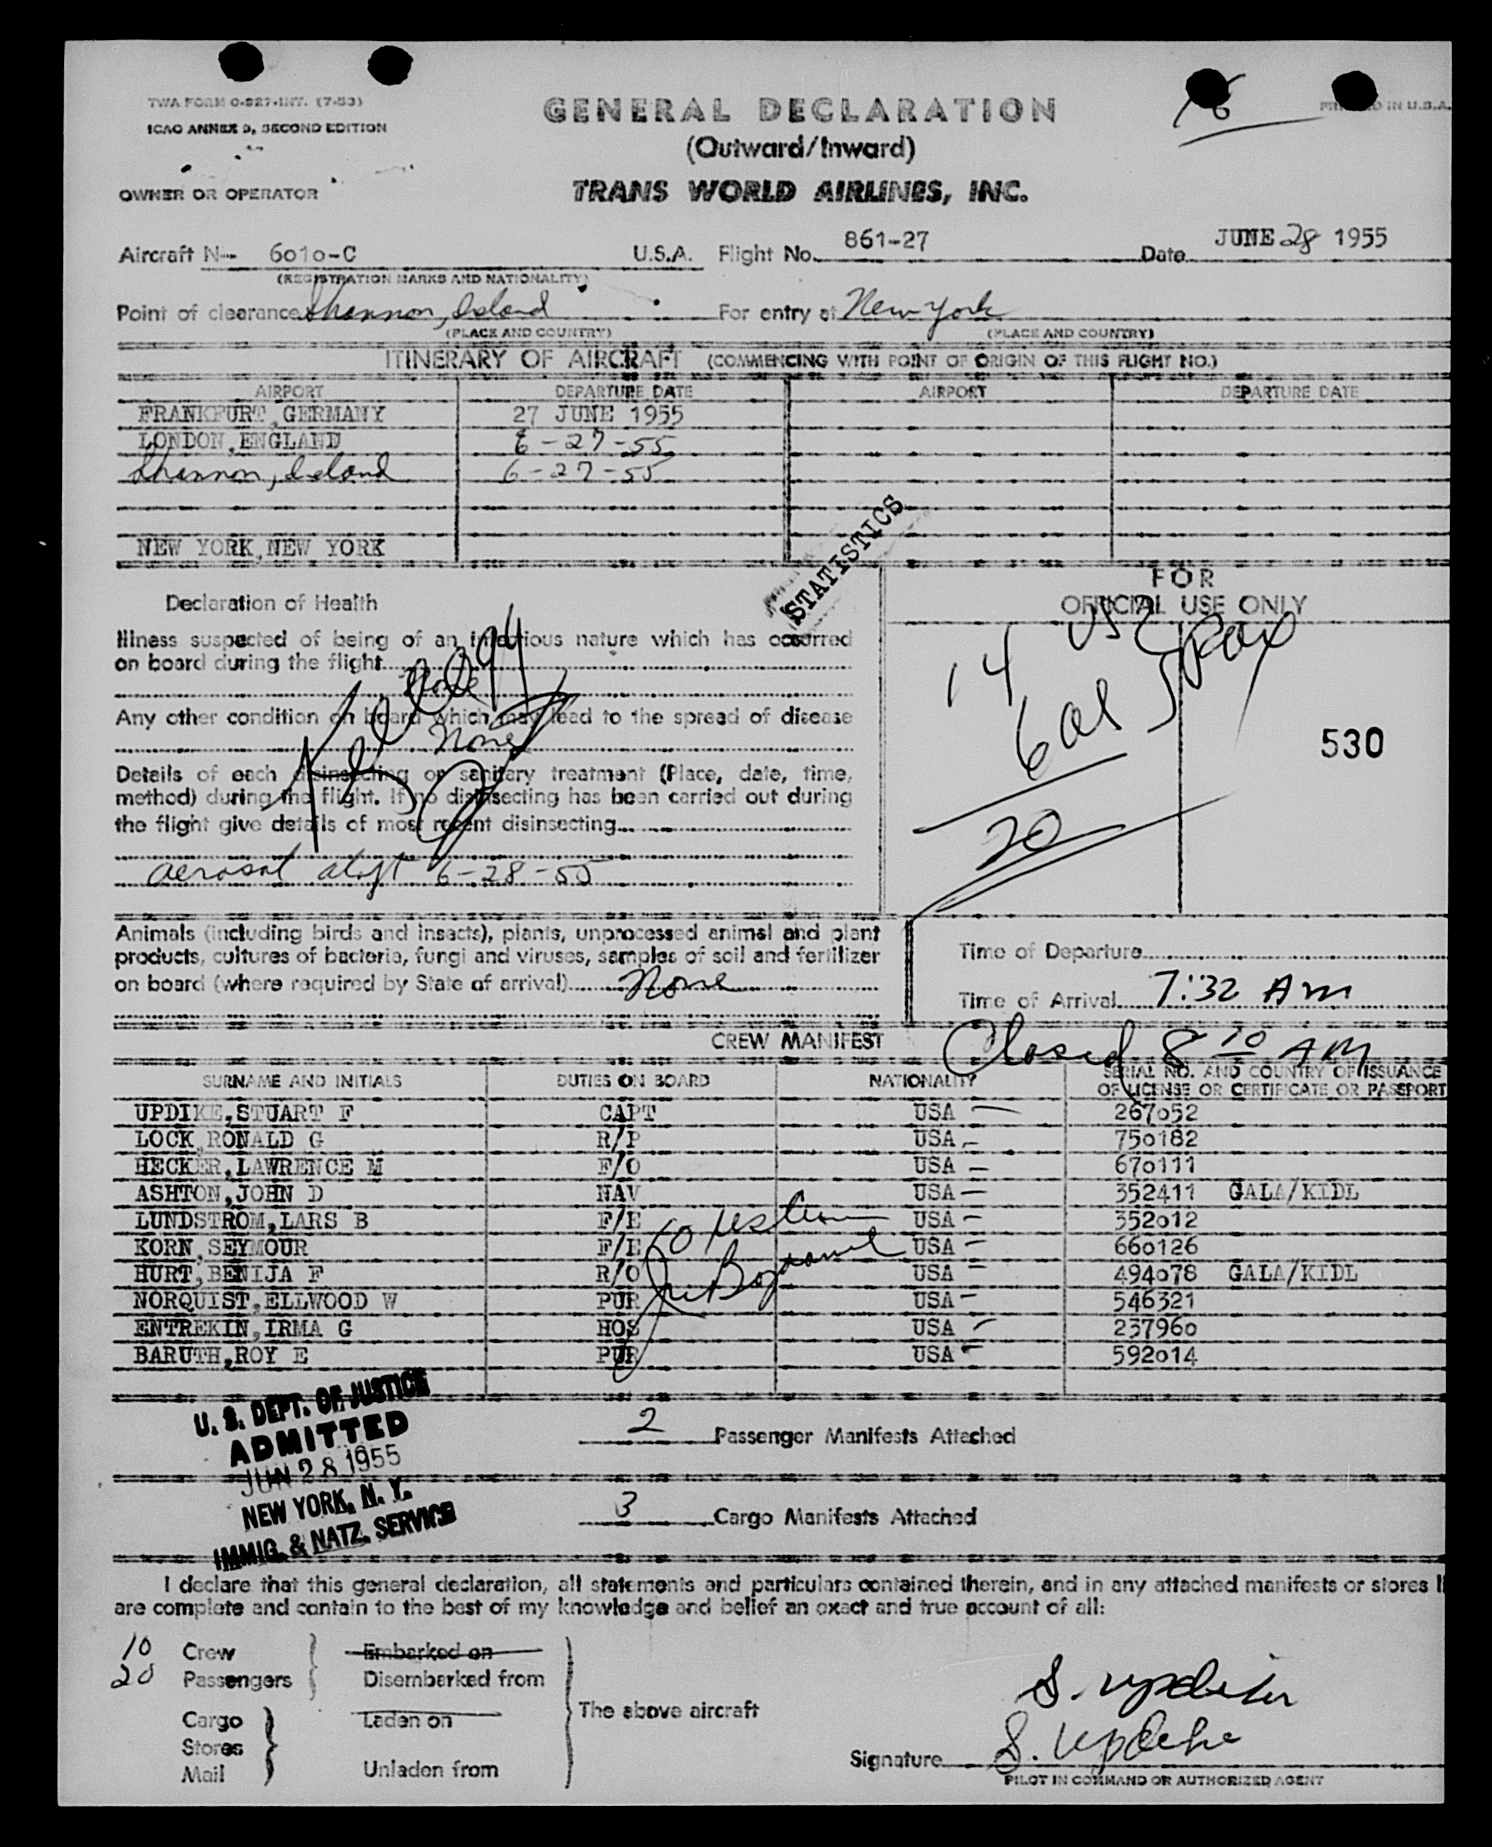 TWA FORM O-827-INT. (7-53)
ICAO ANNEX 9, SECOND EDITION
GENERAL DECLARATION
(Outward/Inward)
PRINTED IN U.S.A.
OWNER OR OPERATOR
TRANS WORLD AIRLINES, INC.
Aircraft N-- 6010-C U.S.A. Flight No. 861-27 Date JUNE 28 1955
(REGISTRATION MARKS AND NATIONALITY)
Point of clearance Shannon, Ireland For entry at New York
(PLACE AND COUNTRY) (PLACE AND COUNTRY)
ITINERARY OF AIRCRAFT (COMMENCING WITH POINT OF ORIGIN OF THIS FLIGHT NO.)
AIRPORT DEPARTURE DATE AIRPORT DEPARTURE DATE
FRANKFURT, GERMANY 27 JUNE 1955
LONDON, ENGLAND 6-27-55
Shannon, Ireland 6-27-55
NEW YORK, NEW YORK
STATISTICS
FOR
OFFICIAL USE ONLY
14 USC
6 al pax
20
530
Declaration of Health
Illness suspected of being of an infectious nature which has occurred
on board during the flight
None
Any other condition on board which may lead to the spread of disease
None
Details of each disinsecting or sanitary treatment (Place, date, time,
method) during the flight. If no disinsecting has been carried out during
the flight give details of most recent disinsecting
aerosol aloft 6-28-55
Animals (including birds and insects), plants, unprocessed animal and plant
products, cultures of bacteria, fungi and viruses, samples of soil and fertilizer
on board (where required by State of arrival) None
Time of Departure
Time of Arrival 7:32 AM
Closed 8 10 AM
CREW MANIFEST
SURNAME AND INITIALS DUTIES ON BOARD NATIONALITY SERIAL NO. AND COUNTRY OF ISSUANCE
OF LICENSE OR CERTIFICATE OR PASSPORT
UPDIKE, STUART F CAPT USA 267052
LOCK, RONALD G R/P USA 750182
HECKER, LAWRENCE M F/O USA 670111
ASHTON, JOHN D NAV USA 352411 GALA/KIDL
LUNDSTROM, LARS B F/E USA 352012
KORN, SEYMOUR F/E USA 660126
HURT, BENIJA F R/O USA 494078 GALA/KIDL
NORQUIST, ELLWOOD W PUR USA 546321
ENTREKIN, IRMA G HOS USA 237960
BARUTH, ROY E PUR USA 592014
U. S. DEPT. OF JUSTICE
ADMITTED
JUN 28 1955
NEW YORK, N. Y.
IMMIG. & NATZ. SERVICE
2 Passenger Manifests Attached
3 Cargo Manifests Attached
I declare that this general declaration, all statements and particulars contained therein, and in any attached manifests or stores
are complete and contain to the best of my knowledge and belief an exact and true account of all:
10 Crew Embarked on
20 Passengers Disembarked from
The above aircraft
Cargo Laden on
Stores
Mail Unladen from
S. Updike
Signature S. Updike
PILOT IN COMMAND OR AUTHORIZED AGENT